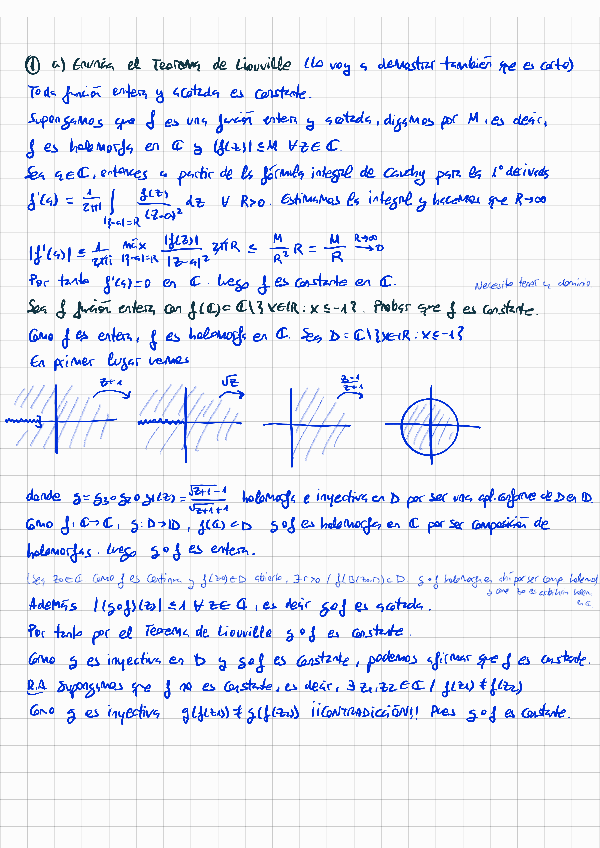 ① a) Enuncia el Teorema de Liouville (Lo voy a demostrar también que es corto)
Toda función entera y acotada es constante.
Supongamos que f es una función entera y acotada, digamos por M, es decir,
f es holomorfa en ℂ y |f(z)| ≤ M ∀z∈ℂ.
Sea a∈ℂ, entonces a partir de la fórmula integral de Cauchy para la 1ª derivada
f'(a) = 1/2πi ∫_{|z-a|=R} f(z)/(z-a)² dz ∀ R>0. Estimamos la integral y hacemos que R→∞
|f'(a)| ≤ 1/2π máx_{|z-a|=R} |f(z)|/|z-a|² 2πR ≤ M/R² R = M/R →^{R→∞} 0
Por tanto f'(a)=0 en ℂ. Luego f es constante en ℂ.
Necesito tener un dominio
Sea f función entera con f(ℂ)⊂ℂ\{x∈ℝ: x≤-1}. Probar que f es constante.
Como f es entera, f es holomorfa en ℂ. Sea D=ℂ\{x∈ℝ: x≤-1}
En primer lugar vemos
z+1 √z z-1/z+1
donde g=g₃∘g₂∘g₁(z)= √z+1 -1/√z+1 +1 holomorfa e inyectiva en D por ser una apl. conforme de D en 𝔻.
Como f:ℂ→ℂ, g:D→𝔻, f(ℂ)⊂D g∘f es holomorfa en ℂ por ser composición de
holomorfas. Luego g∘f es entera.
(Sea z₀∈ℂ como f es continua y f(z₀)∈D abierto, ∃r>0 / f(B(z₀,r))⊂D. g∘f holomorfa en ahí por ser comp holomorf
Además |(g∘f)(z)| ≤ 1 ∀z∈ℂ, es decir g∘f es acotada.
Por tanto por el Teorema de Liouville g∘f es constante.
Como g es inyectiva en D y g∘f es constante, podemos afirmar que f es constante.
R.A Supongamos que f no es constante, es decir, ∃ z₁,z₂∈ℂ / f(z₁)≠f(z₂)
Como g es inyectiva g(f(z₁))≠g(f(z₂)) ¡¡CONTRADICCIÓN!! Pues g∘f es constante.